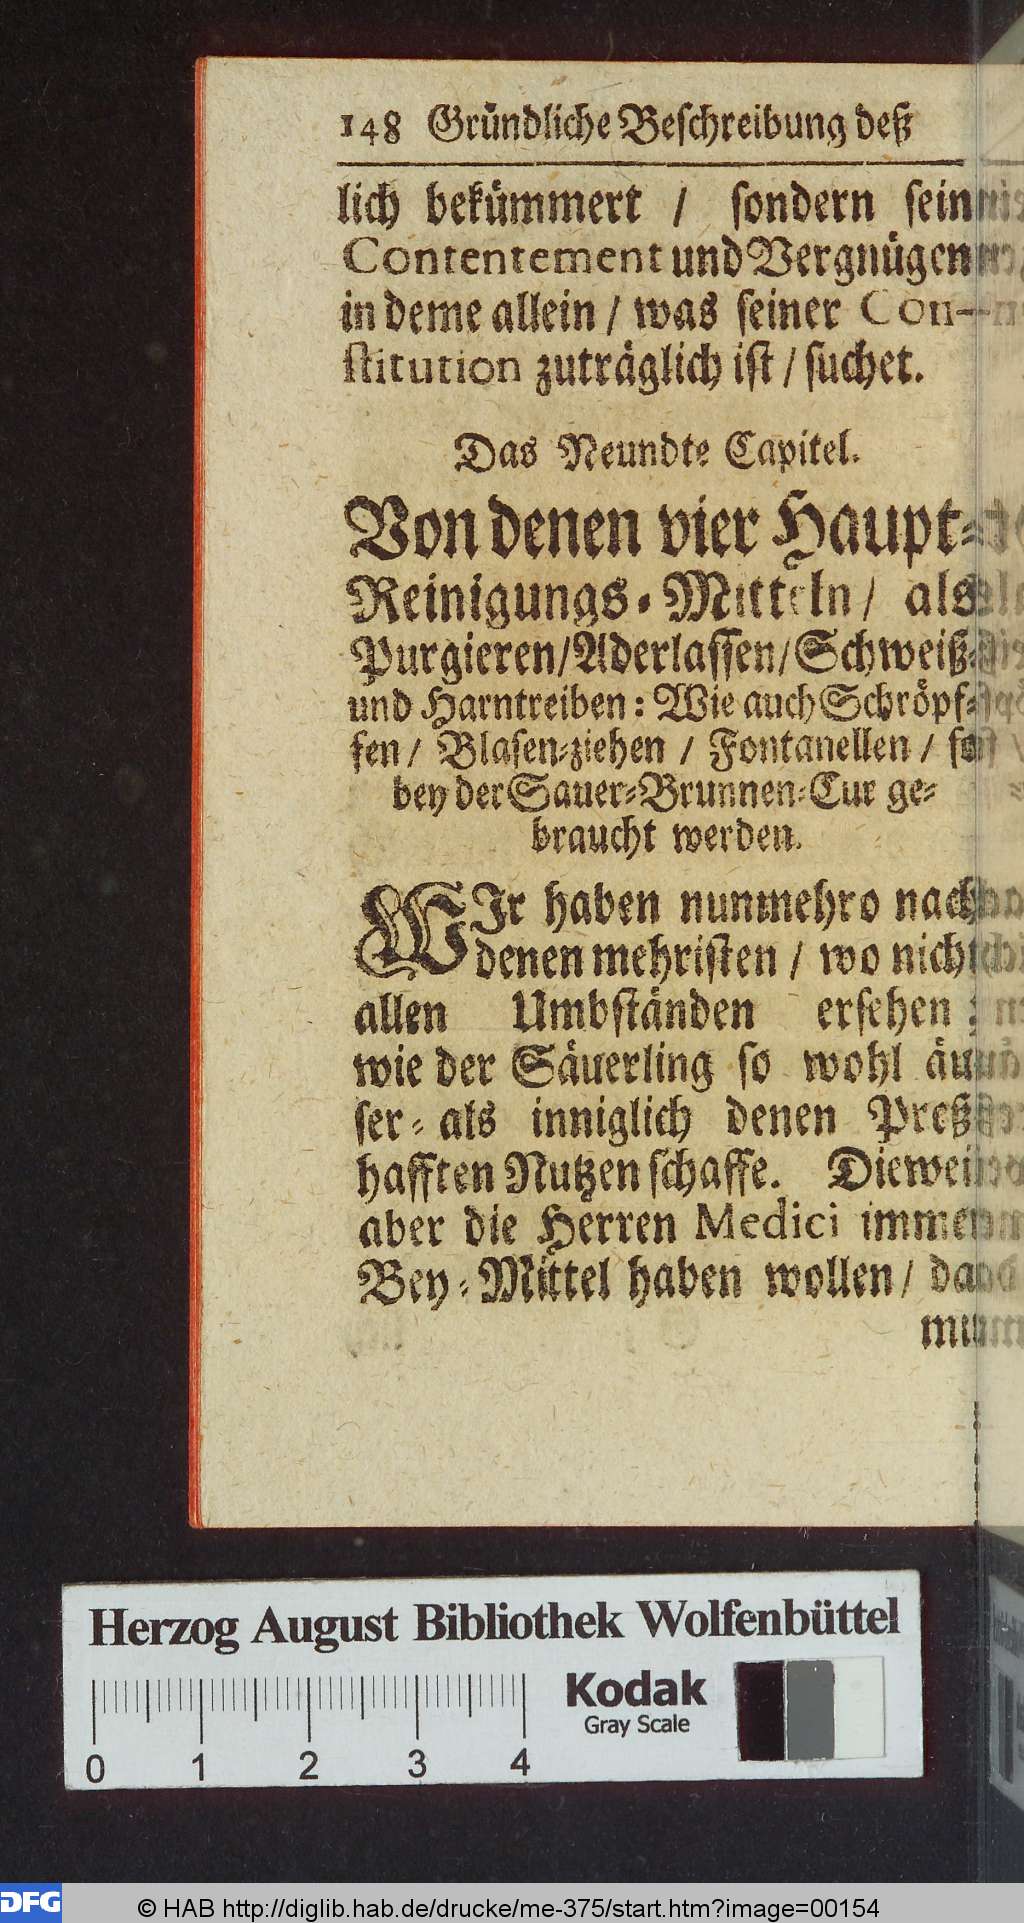 148 Gründliche Beschreibung deß
lich bekümmert / sondern sein
Contentement und Vergnügen
in deme allein / was seiner Con-
stitution zuträglich ist / suchet.
Das Neundte Capitel.
Von denen vier Haupt-
Reinigungs-Mitteln / als
Purgieren/Aderlassen/Schweiß-
und Harntreiben: Wie auch Schröpf-
fen / Blasen-ziehen / Fontanellen / so
bey der Sauer-Brunnen-Cur ge-
braucht werden.
WIr haben nunmehro nach
denen mehristen / wo nicht
allen Umbständen ersehen ;
wie der Säuerling so wohl äu-
ser- als inniglich denen Preß-
hafften Nutzen schaffe. Dieweil
aber die Herren Medici immer
Bey-Mittel haben wollen / da-
mit
Herzog August Bibliothek Wolfenbüttel
Kodak
Gray Scale
0 1 2 3 4
DFG © HAB http://diglib.hab.de/drucke/me-375/start.htm?image=00154